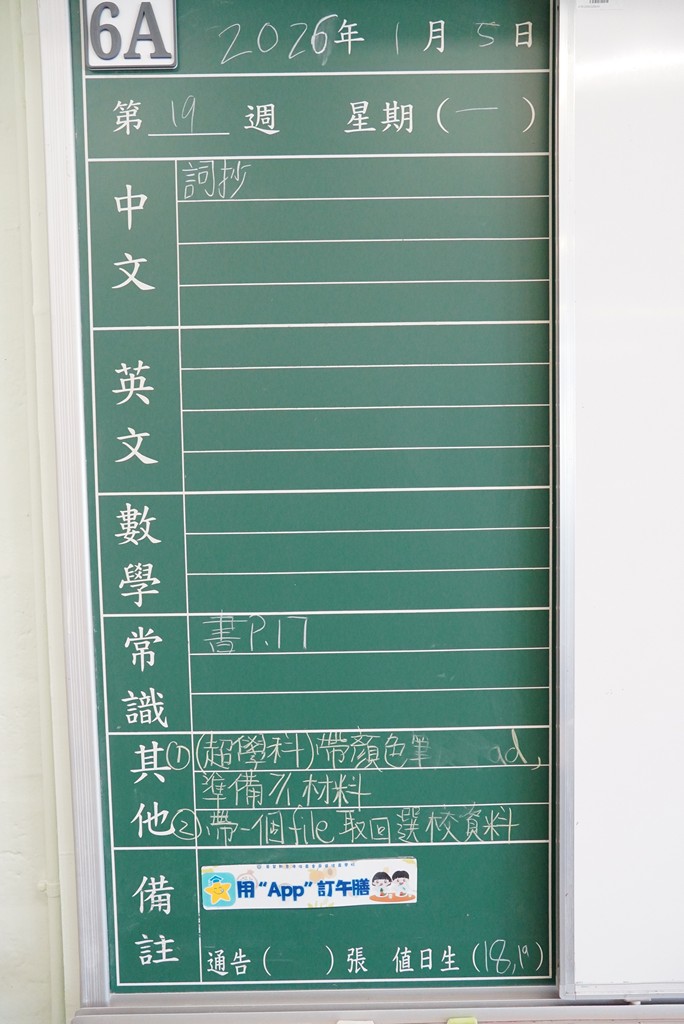 6A
2026年1月5日
第19週 星期(一)
中文
詞抄
英文
數學
常識
書P.17
其他
①(超學科)帶顏色筆 ad,
準備 材料
②帶一個file取回選校資料
備註
用“App”訂午膳
通告( )張 值日生(18,19)